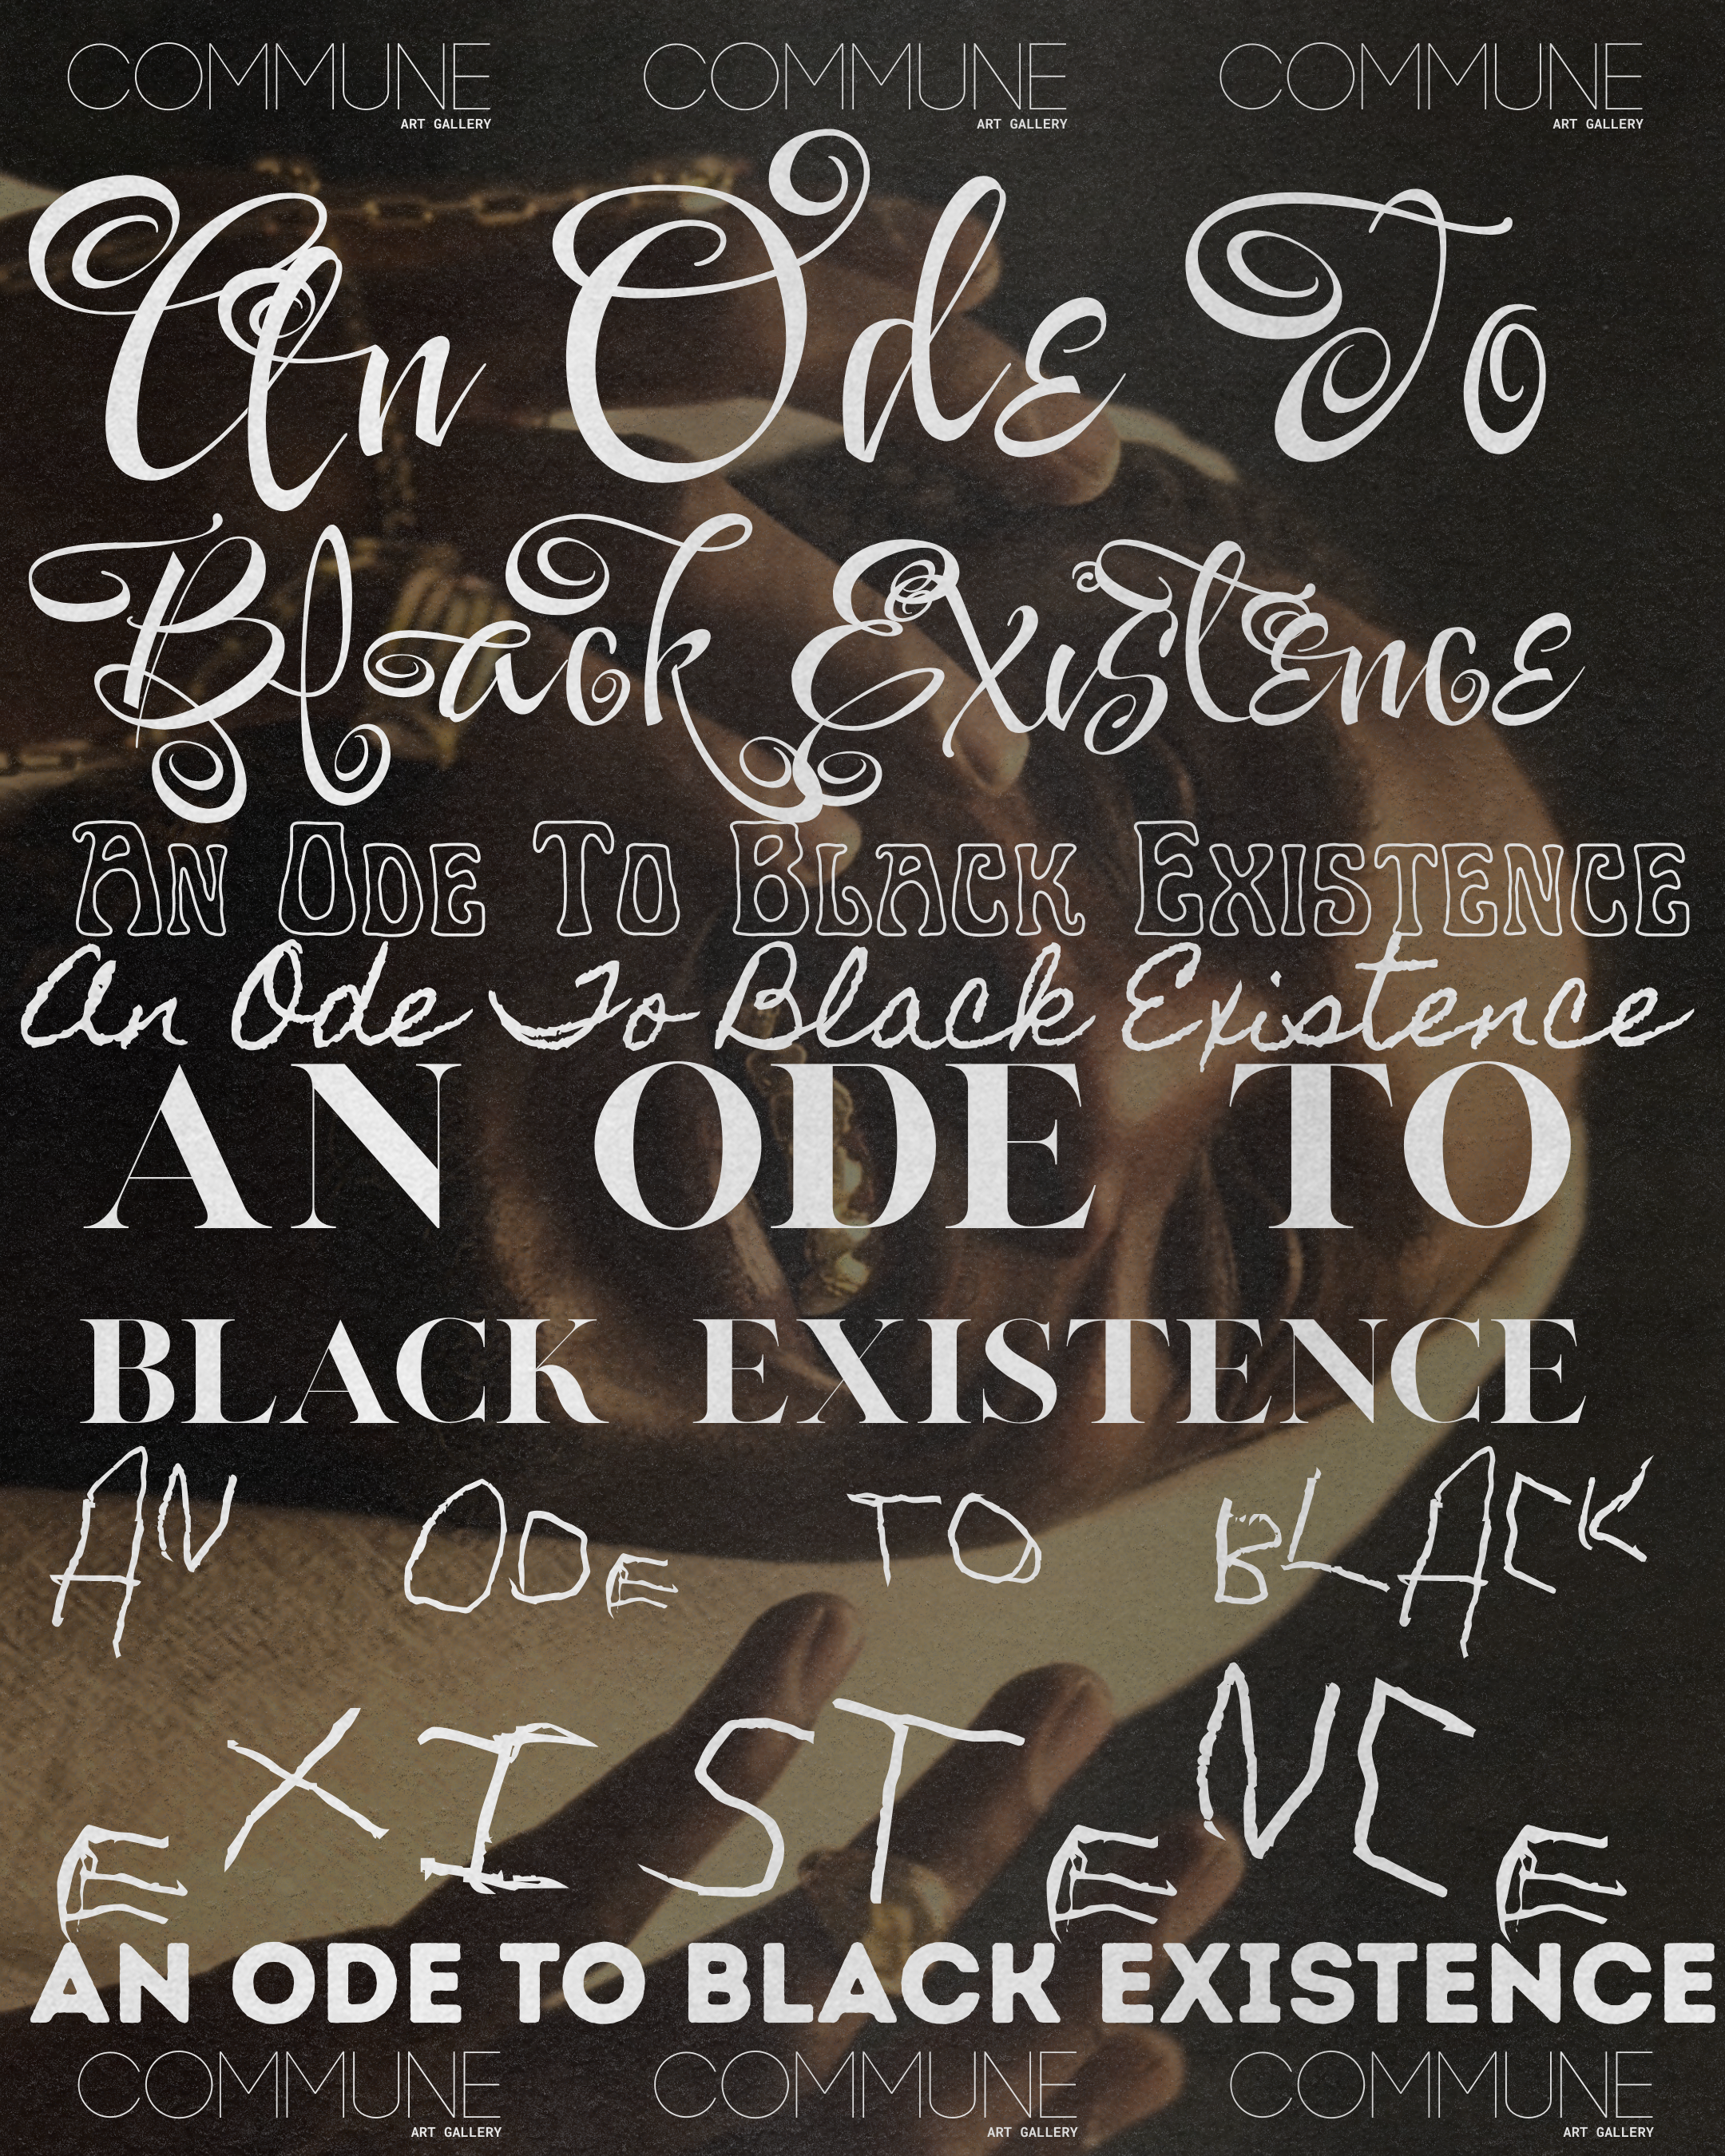 COMMUNE COMMUNE COMMUNE
ART GALLERY ART GALLERY ART GALLERY
An Ode To
Black Existence
An Ode To Black Existence
An Ode To Black Existence
AN ODE TO
BLACK EXISTENCE
AN ODE TO BLACK
EXISTENCE
AN ODE TO BLACK EXISTENCE
COMMUNE COMMUNE COMMUNE
ART GALLERY ART GALLERY ART GALLERY